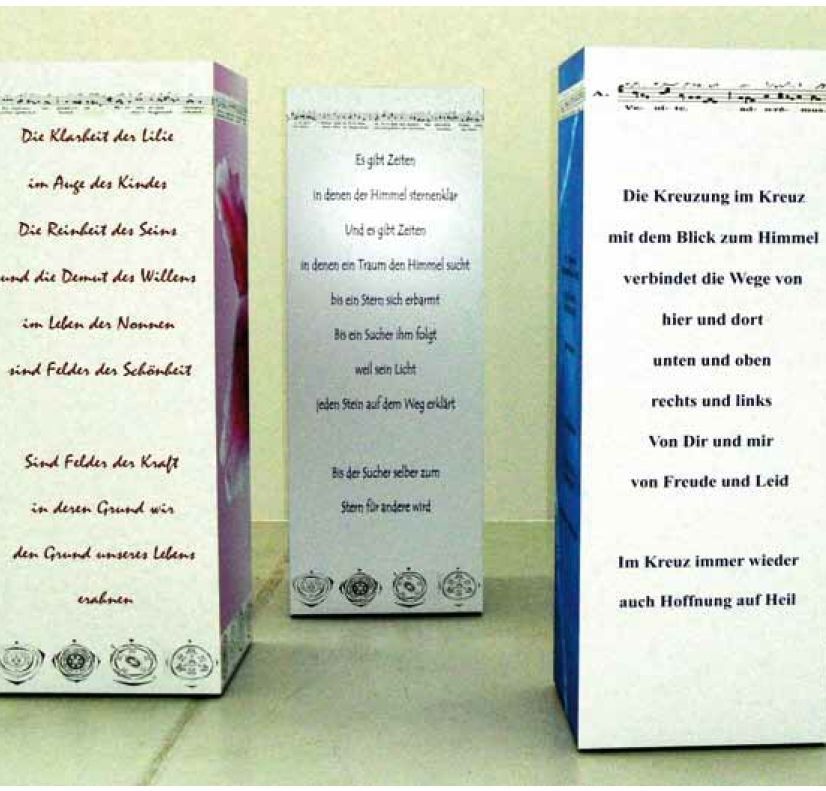 Die Klarheit der Lilie
im Auge des Kindes
Die Reinheit des Seins
und die Demut des Willens
im Leben der Nonnen
sind Felder der Schönheit
Sind Felder der Kraft
in deren Grund wir
den Grund unseres Lebens
erahnen
Es gibt Zeiten
in denen der Himmel sternenklar
Und es gibt Zeiten
in denen ein Traum den Himmel sucht
bis ein Stern sich erbarmt
Bis ein Sucher ihm folgt
weil sein Licht
jeden Stein auf dem Weg erklärt
Bis der Sucher selber zum
Stern für andere wird
Die Kreuzung im Kreuz
mit dem Blick zum Himmel
verbindet die Wege von
hier und dort
unten und oben
rechts und links
Von Dir und mir
von Freude und Leid
Im Kreuz immer wieder
auch Hoffnung auf Heil